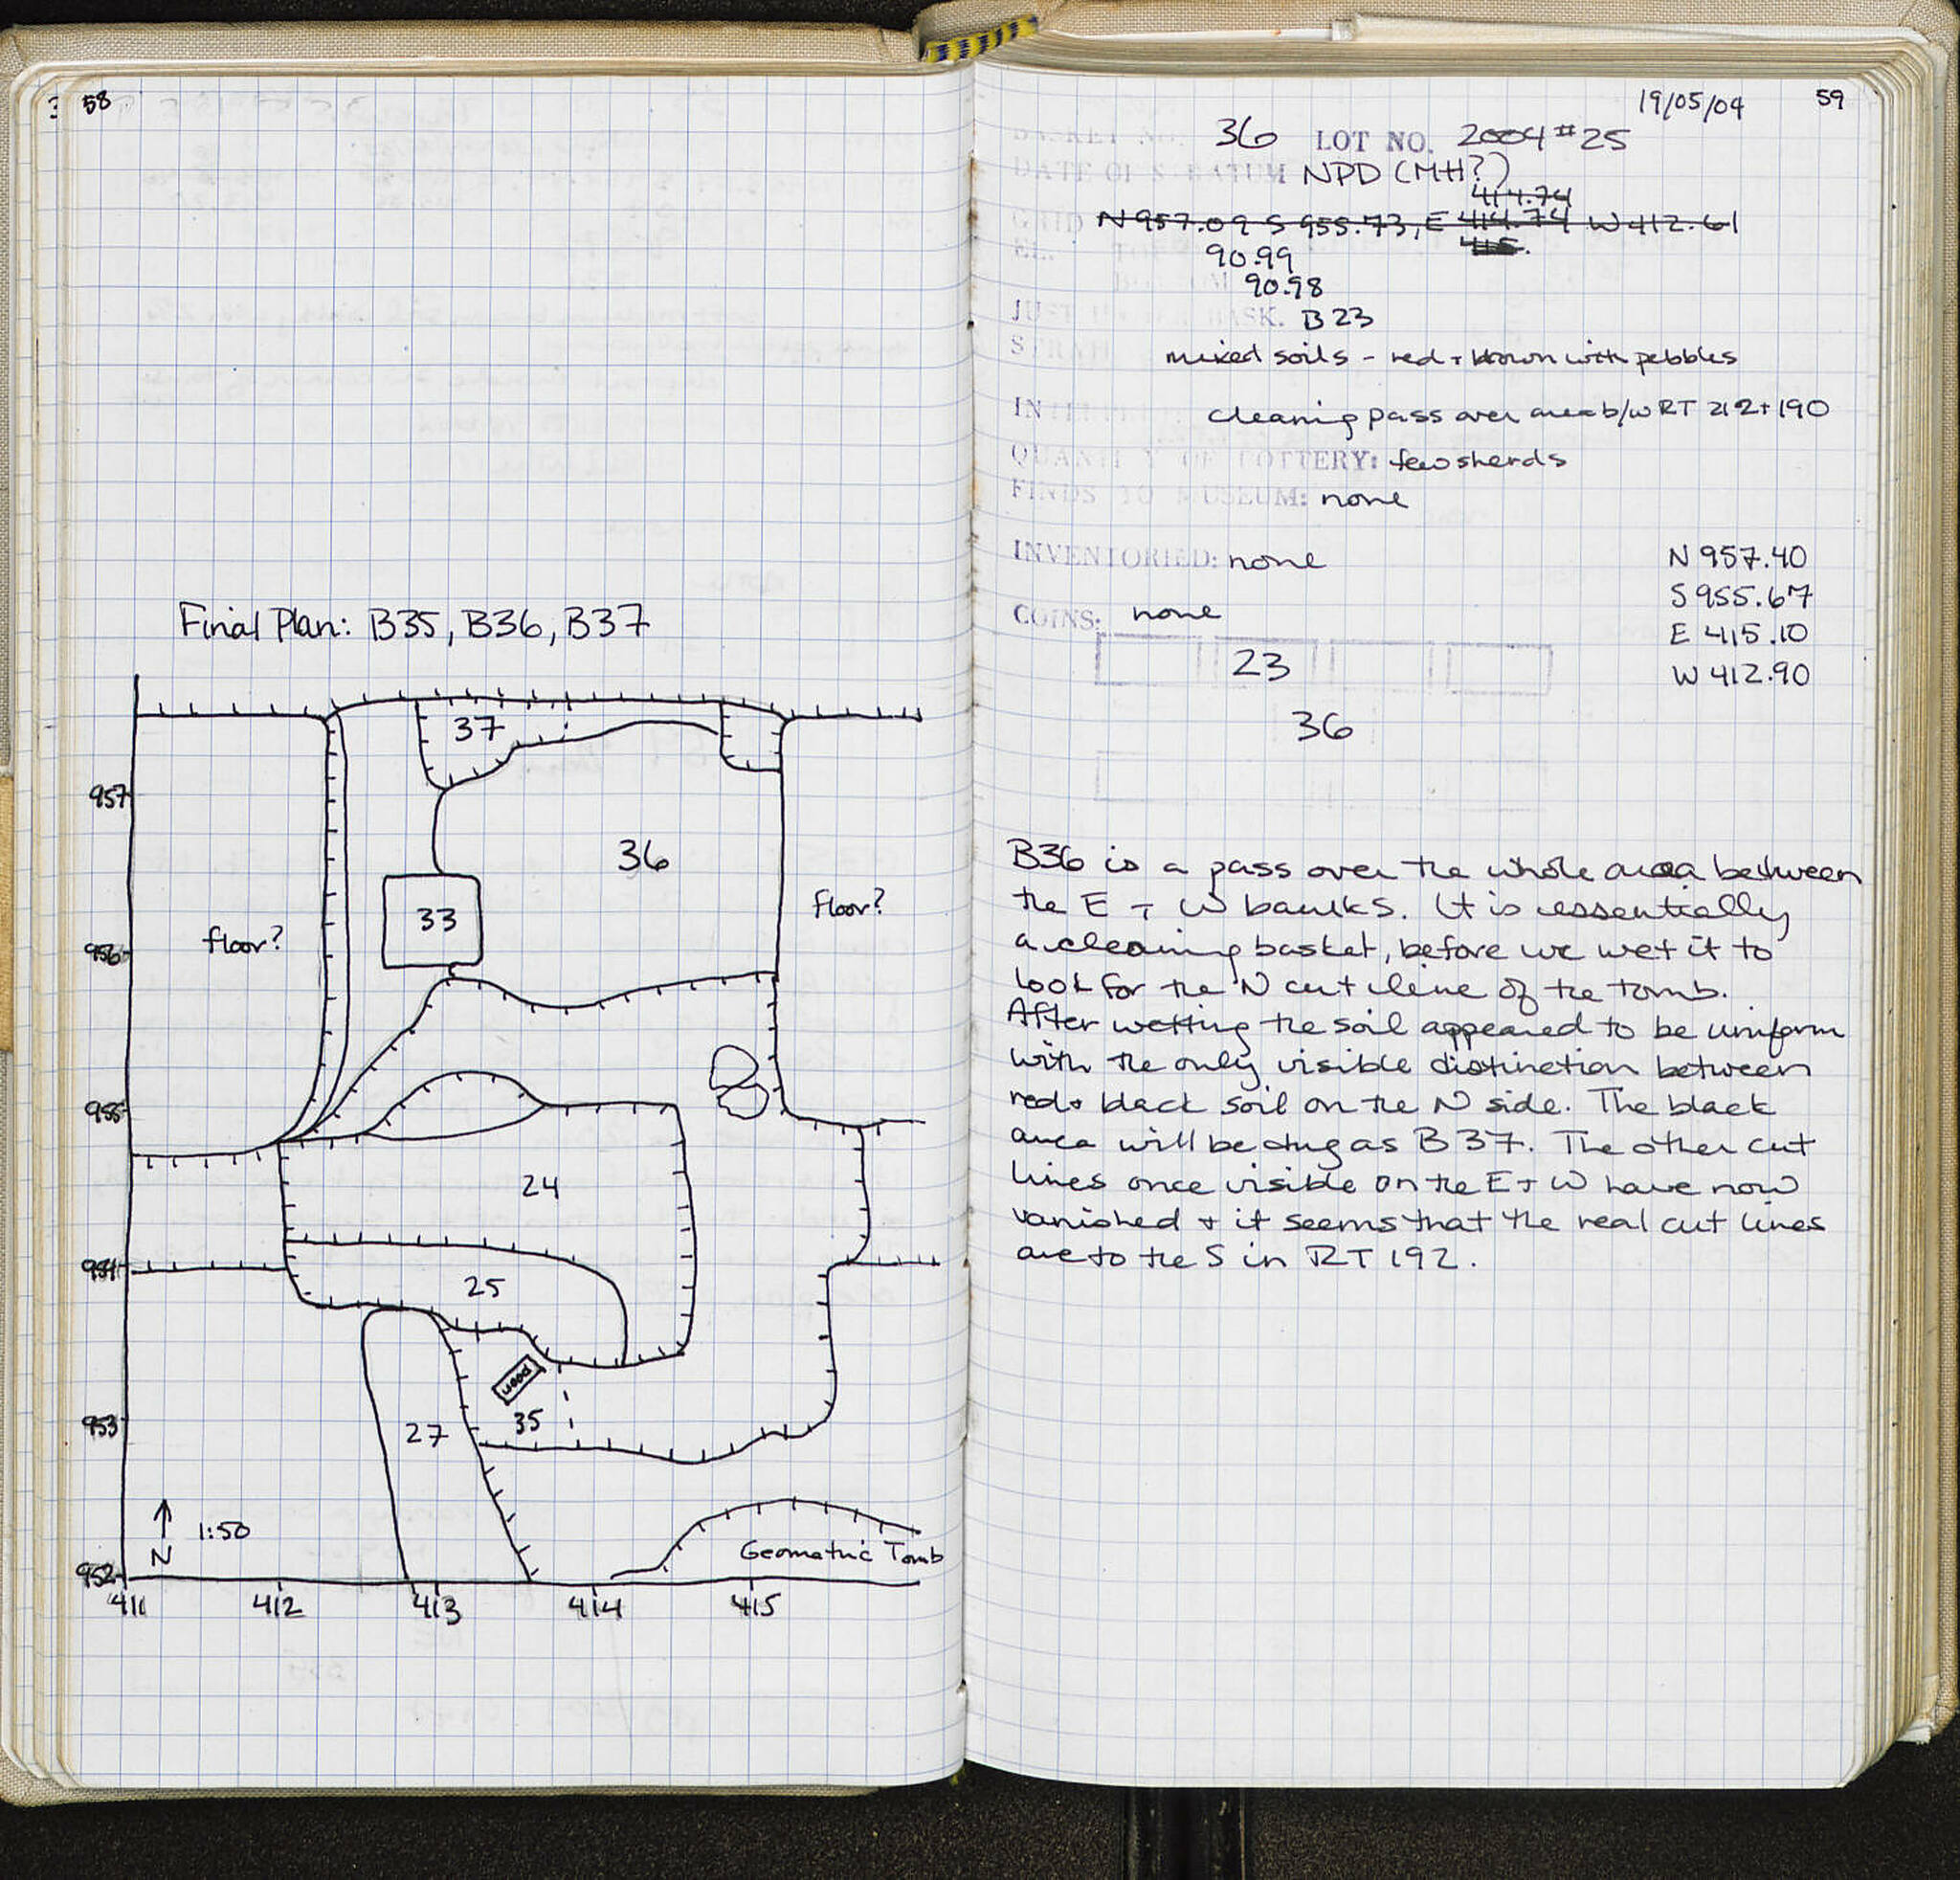 58
Final Plan: B35, B36, B37
37
957
36
33
floor?
floor?
956
955
24
954
25
wood
35
27
953
1:50
N
Geometric Tomb
952
411 412 413 414 415
19/05/04 59
BASKET NO. 36 LOT NO. 2004 #25
DATE OF STRATUM NPD (MH?)
414.74
GRID N 957.09 S 955.73, E 414.74 W 412.61
415.
EL. TOP 90.99
BOTTOM 90.98
JUST UNDER BASK. B23
STRATUM mixed soils - red + brown with pebbles
INTERPRET cleaning pass over area b/w RT 212 + 190
QUANTITY OF POTTERY: few sherds
FINDS TO MUSEUM: none
INVENTORIED: none
COINS: none
N 957.40
S 955.67
E 415.10
W 412.90
23
36
B36 is a pass over the whole area between
the E + W baulks. It is essentially
a cleaning basket, before we wet it to
look for the N cut line of the tomb.
After wetting the soil appeared to be uniform
with the only visible distinction between
red + black soil on the N side. The black
area will be dug as B37. The other cut
lines once visible on the E + W have now
vanished + it seems that the real cut lines
are to the S in RT 192.